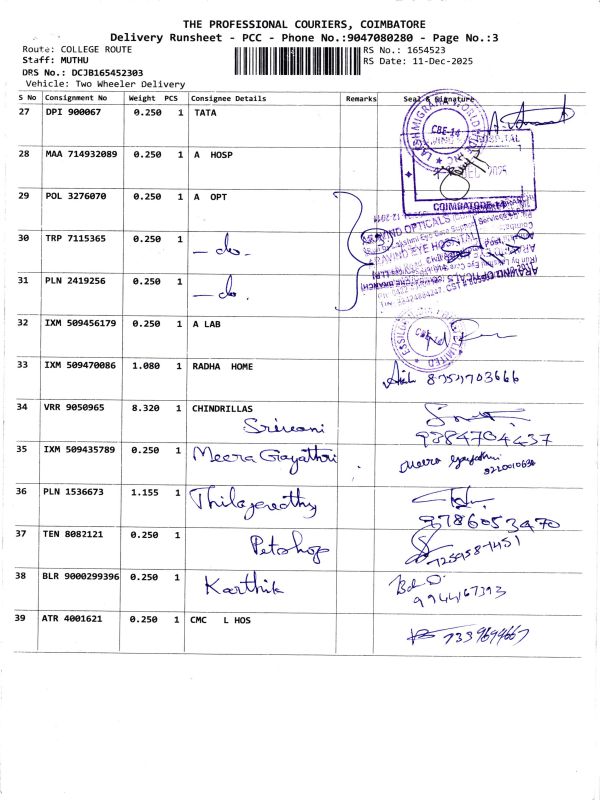 THE PROFESSIONAL COURIERS, COIMBATORE
Delivery Runsheet - PCC - Phone No.:9047080280 - Page No.:3
Route: COLLEGE ROUTE
RS No.: 1654523
Staff: MUTHU
RS Date: 11-Dec-2025
DRS No.: DCJB165452303
Vehicle: Two Wheeler Delivery
S No Consignment No Weight PCS Consignee Details Remarks Seal & Signature
27 DPI 900067 0.250 1 TATA
LAKSHMIGRAHA WORLD
CBE-14
28 MAA 714932089 0.250 1 A HOSP
COIMBATORE-14
29 POL 3276070 0.250 1 A OPT
ARAVIND OPTICALS
ARAVIND EYE HOSPITAL
30 TRP 7115365 0.250 1 -do-
31 PLN 2419256 0.250 1 -do-
ARAVIND OPTICALS
32 IXM 509456179 0.250 1 A LAB
33 IXM 509470086 1.080 1 RADHA HOME 8754703666
34 VRR 9050965 8.320 1 CHINDRILLAS
Srivani 9384704437
35 IXM 509435789 0.250 1 Meera Gayathri Meera Gayathri
8220010636
36 PLN 1536673 1.155 1
9786053470
37 TEN 8082121 0.250 1 Petshop 7259587451
38 BLR 9000299396 0.250 1 Karthik
9944167393
39 ATR 4001621 0.250 1 CMC L HOS 7339694667